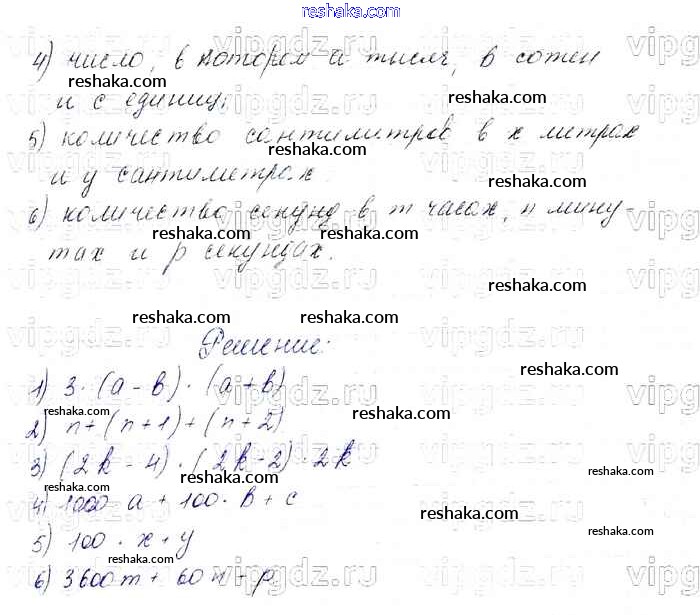 reshaka.com
4) число, в котором a тысяч, b сотен
и c единиц;
5) количество сантиметров в x метрах
и y сантиметрах
6) количество секунд в m часах, n мину-
тах и p секундах.
Решение:
1) 3·(a - b)·(a + b)
2) n + (n + 1) + (n + 2)
3) (2k - 4)·(2k - 2)·2k
4) 1000 a + 100·b + c
5) 100·x + y
6) 3600m + 60n + p
reshaka.com
vipgdz.ru